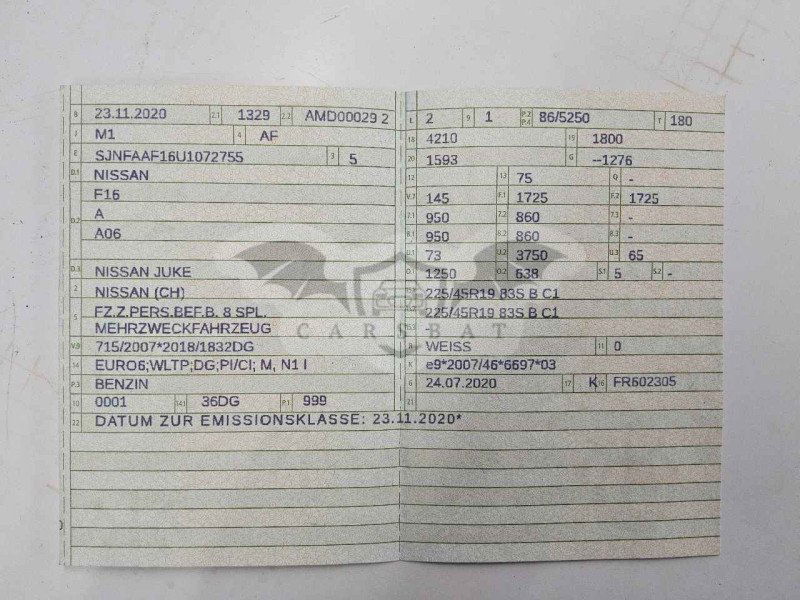 B 23.11.2020 2.1 1329 2.2 AMD00029 2
J M1 4 AF
E SJNFAAF16U1072755 3 5
D.1 NISSAN
F16
D.2 A
A06
D.3 NISSAN JUKE
2 NISSAN (CH)
5 FZ.Z.PERS.BEF.B. 8 SPL.
MEHRZWECKFAHRZEUG
V.9 715/2007*2018/1832DG
14 EURO6;WLTP;DG;PI/CI; M, N1 I
P.3 BENZIN
10 0001 14.1 36DG P.1 999
22 DATUM ZUR EMISSIONSKLASSE: 23.11.2020*
L 2 9 1 P.2 P.4 86/5250 T 180
18 4210 19 1800
20 1593 G --1276
12 13 75 Q -
V.7 145 F.1 1725 F.2 1725
7.1 950 7.2 860 7.3 -
8.1 950 8.2 860 8.3 -
U.1 73 U.2 3750 U.3 65
O.1 1250 O.2 638 S.1 5 S.2 -
225/45R19 83S B C1
225/45R19 83S B C1
R WEISS 11 0
K e9*2007/46*6697*03
6 24.07.2020 17 K 16 FR602305
21
CARSBAT